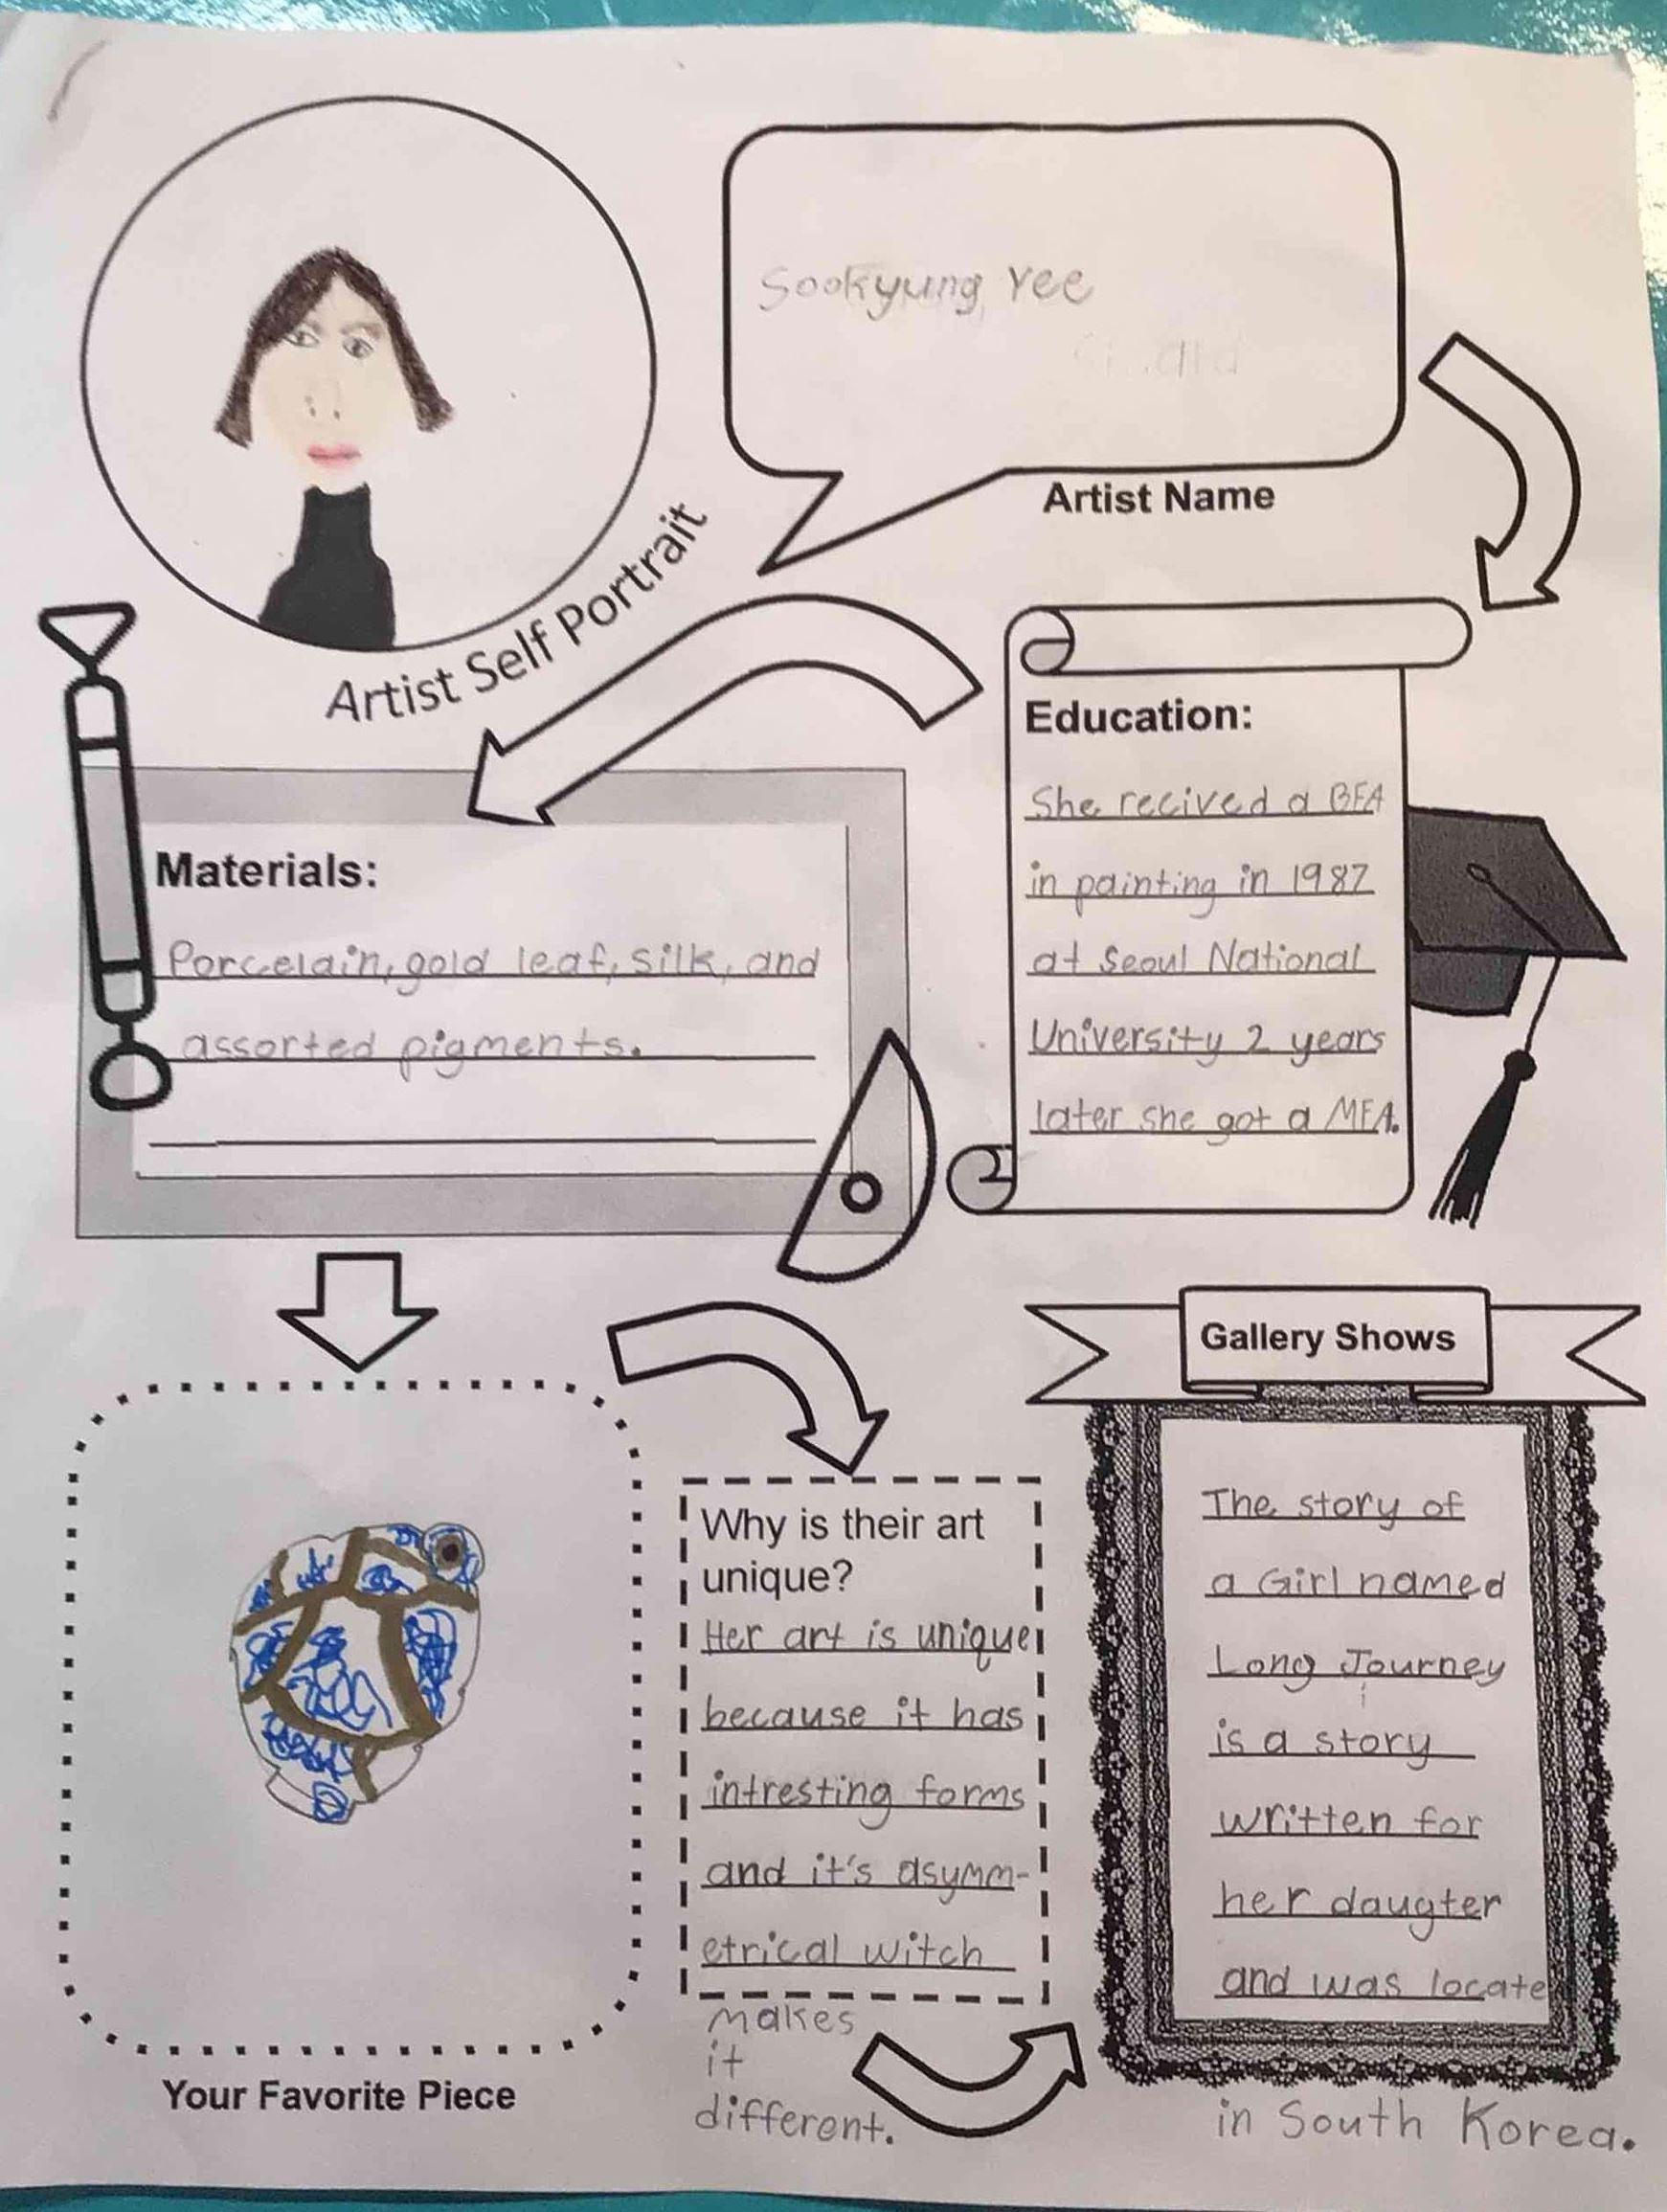 Sookyung Yee
Artist Name
Artist Self Portrait
Education:
She recived a BFA
in painting in 1987
at Seoul National
University 2 years
later she got a MFA.
Materials:
Porcelain, gold leaf, silk, and
assorted pigments.
Your Favorite Piece
Why is their art
unique?
Her art is unique
because it has
intresting forms
and it's asymm-
etrical witch
makes
it
different.
Gallery Shows
The story of
a Girl named
Long Journey
is a story
written for
her daugter
and was locate
in South Korea.